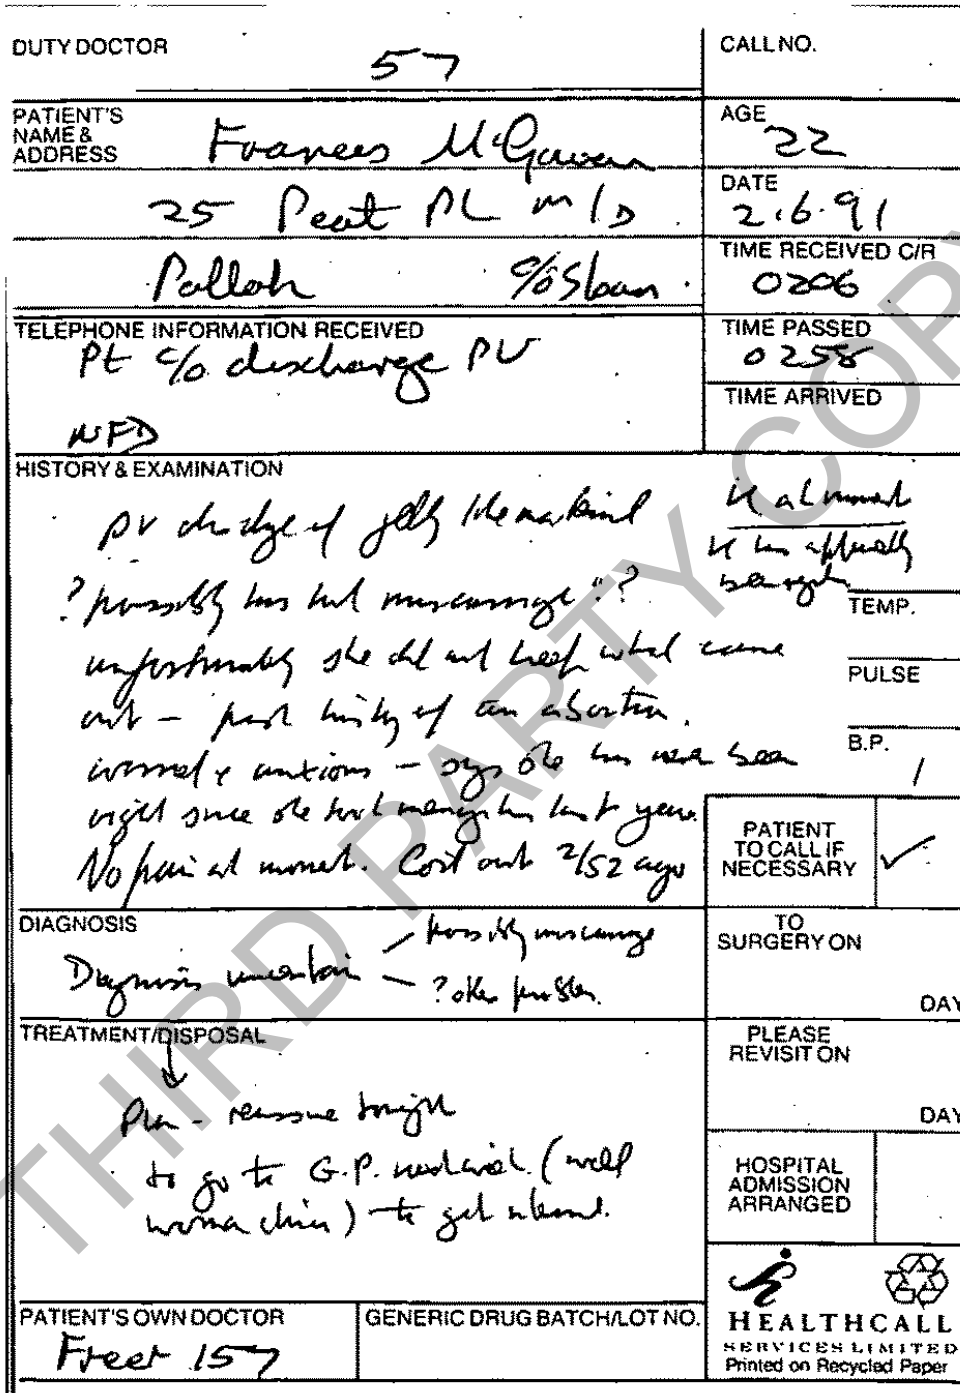 DUTY DOCTOR
57
CALL NO.
PATIENT'S
NAME &
ADDRESS
Frances McGowan
AGE
22
25 Peat PL m/D
DATE
2.6.91
Pollok c/o Sloan
TIME RECEIVED C/R
0206
TELEPHONE INFORMATION RECEIVED
Pt c/o discharge PV
NFD
TIME PASSED
0258
TIME ARRIVED
HISTORY & EXAMINATION
PV of jelly like material
? possibly has had miscarriage "?
unfortunately she did not keep what came
out – past history of abortion.
worried & anxious – says she has never been
right since she took last year.
No pain at moment. Coil out 2/52 ago
TEMP.
PULSE
B.P.
/
PATIENT
TO CALL IF
NECESSARY
✓
DIAGNOSIS
Diagnosis uncertain – possibly miscarriage
– ? other problem.
TO
SURGERY ON
DAY
TREATMENT/DISPOSAL
Plan – reassure tonight
to go to G.P. (well
woman clinic) to get
PLEASE
REVISIT ON
DAY
HOSPITAL
ADMISSION
ARRANGED
PATIENT'S OWN DOCTOR
157
GENERIC DRUG BATCH/LOT NO.
HEALTHCALL
SERVICES LIMITED
Printed on Recycled Paper
THIRD PARTY COPY